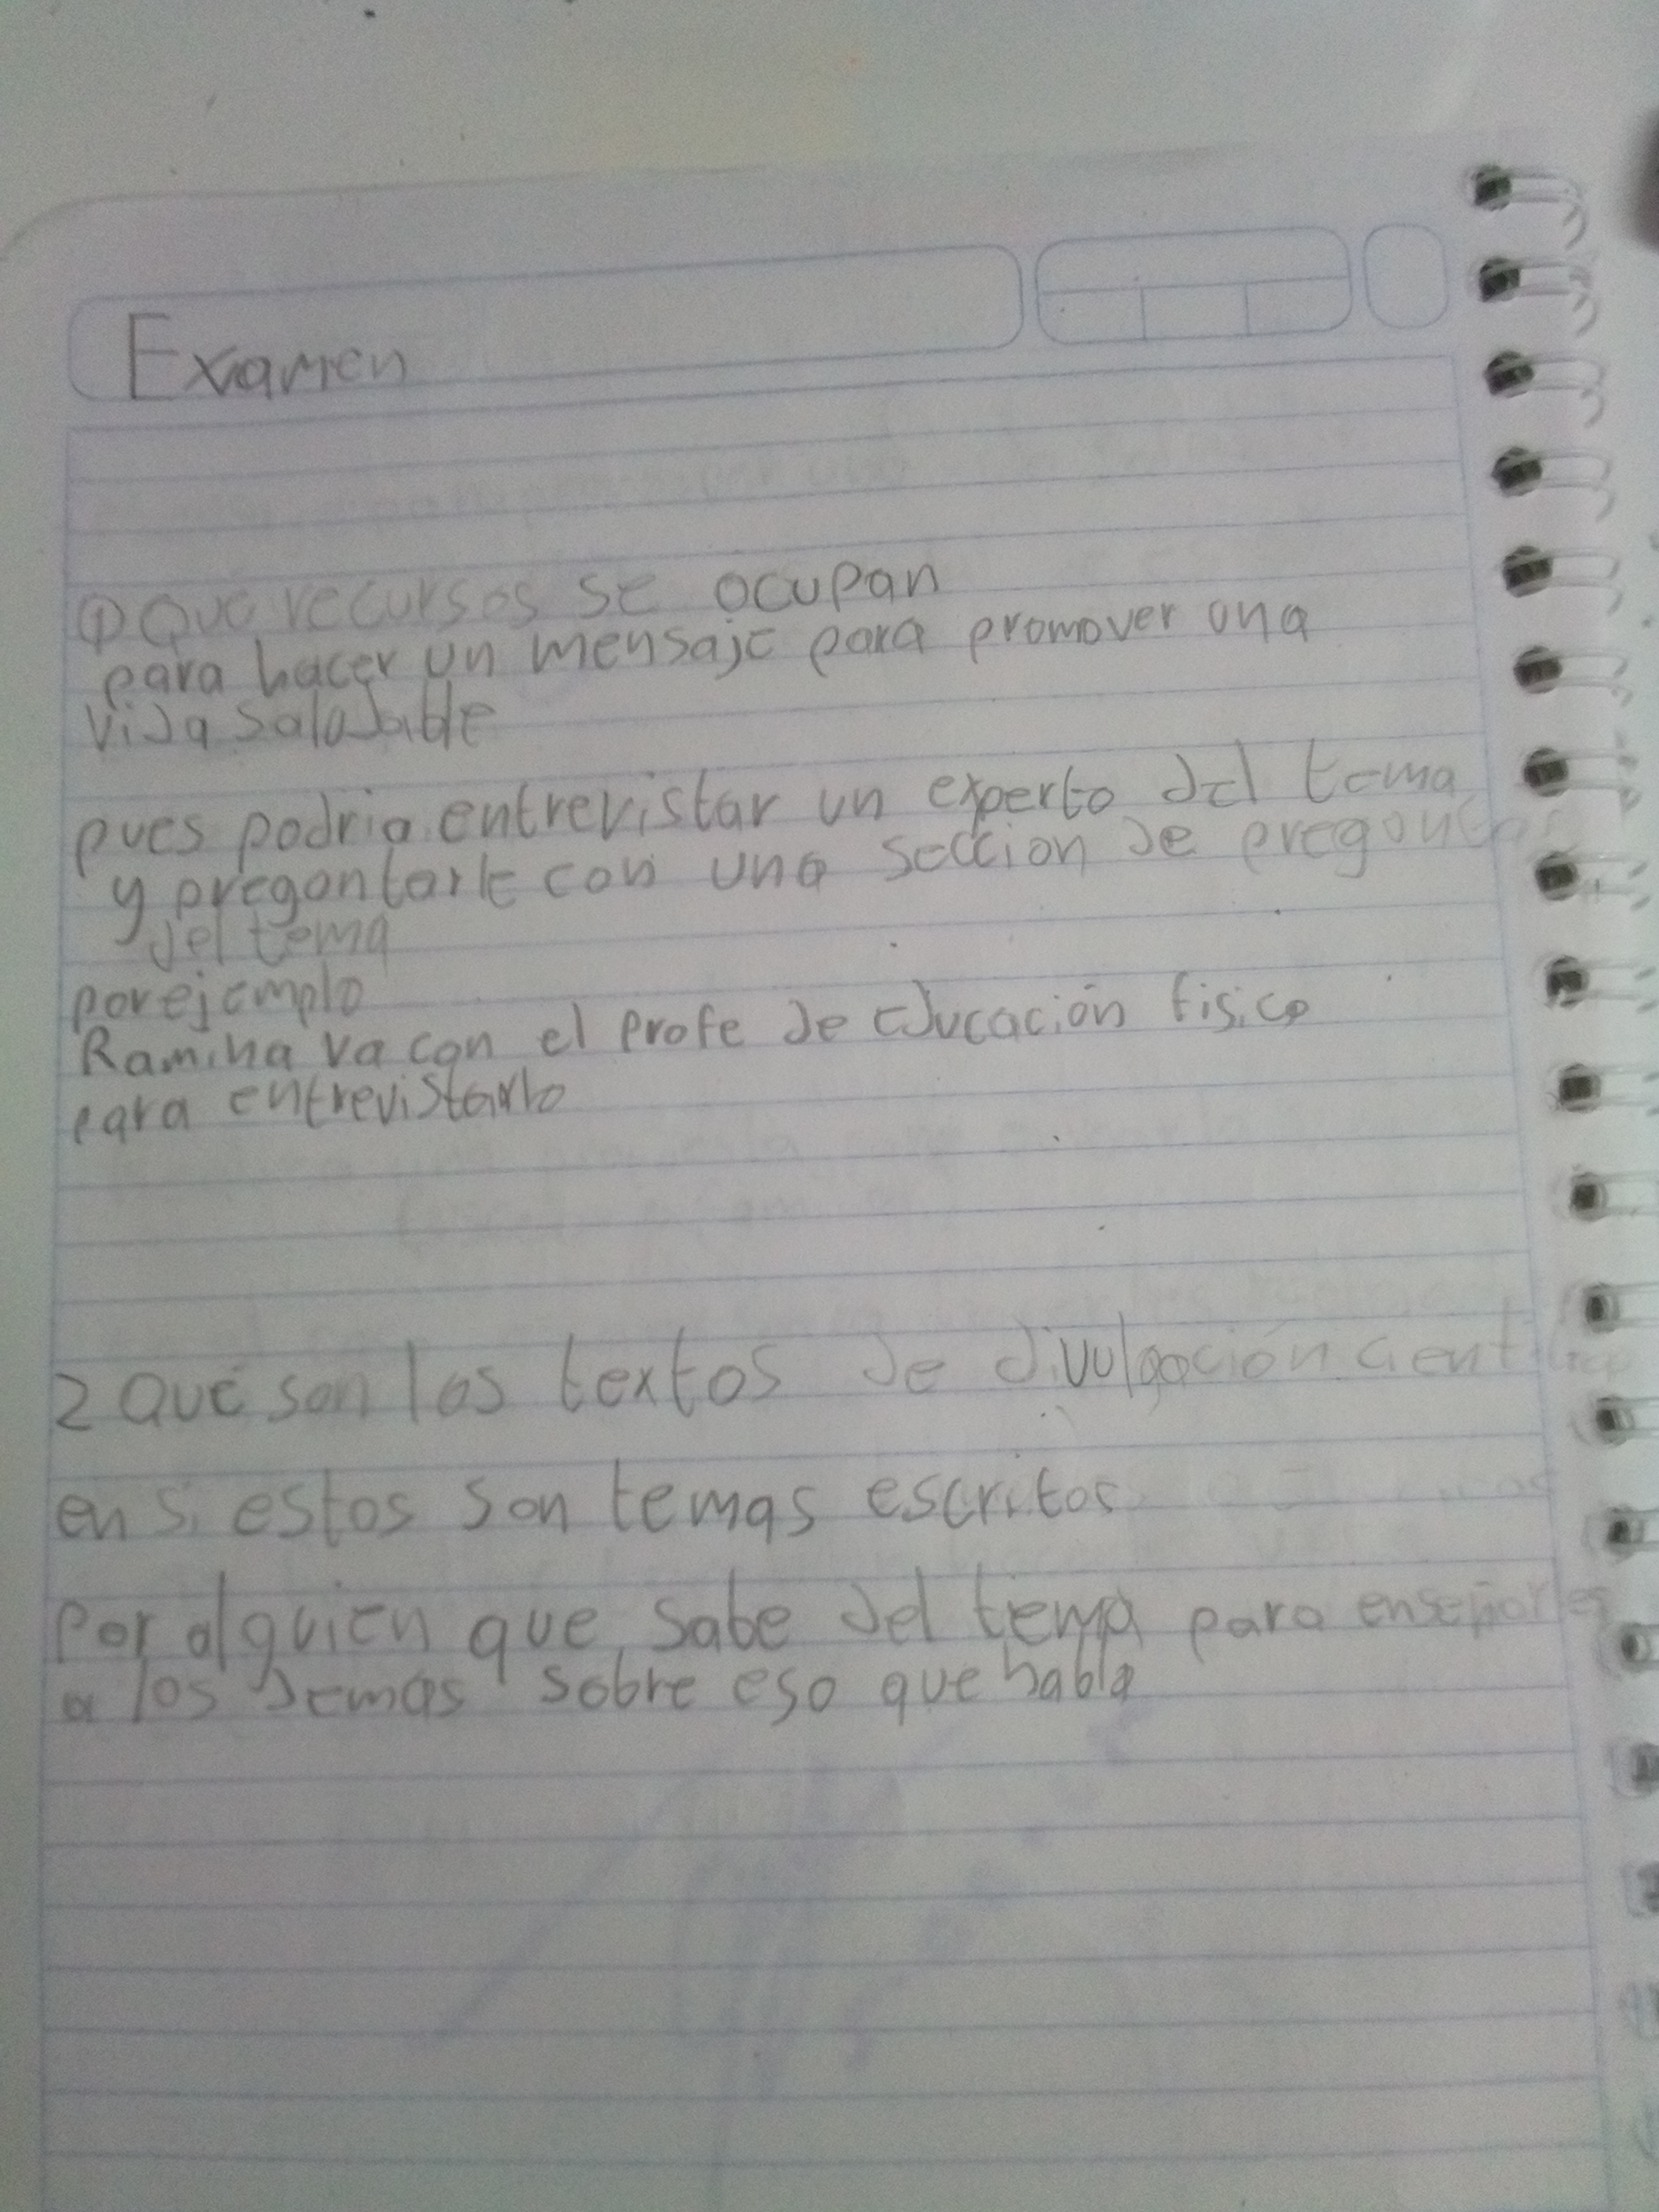 Examen
① Qué recursos se ocupan
para hacer un mensaje para promover una
vida saludable
pues podria entrevistar un experto del tema
y preguntarle con una seccion de preguntas
del tema
por ejemplo
Ramina va con el profe de educación fisica
para entrevistarlo
2 Qué son los textos de divulgación cientifica
en si estos son temas escritos
Por alguien que sabe del tema para enseñarles
a los demas sobre eso que habla